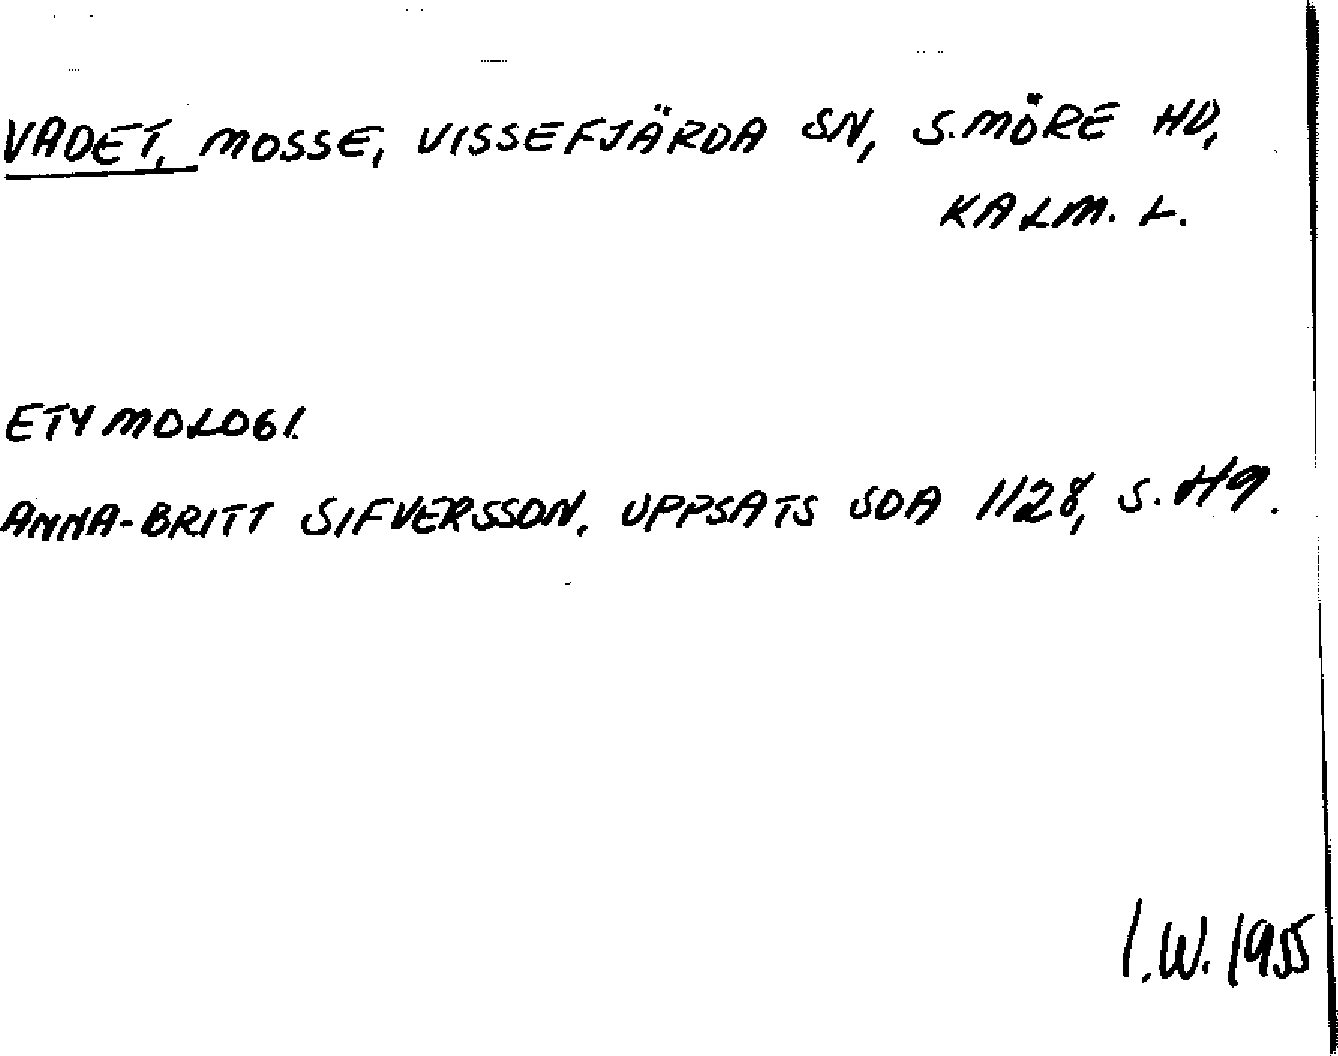 VADET, MOSSE, VISSEFJÄRDA SN, S.MÖRE HD,
KALM. L.
ETYMOLOGI.
ANNA-BRITT SIFVERSSON, UPPSATS SOA 1128, S. 49.
I.W. 1955